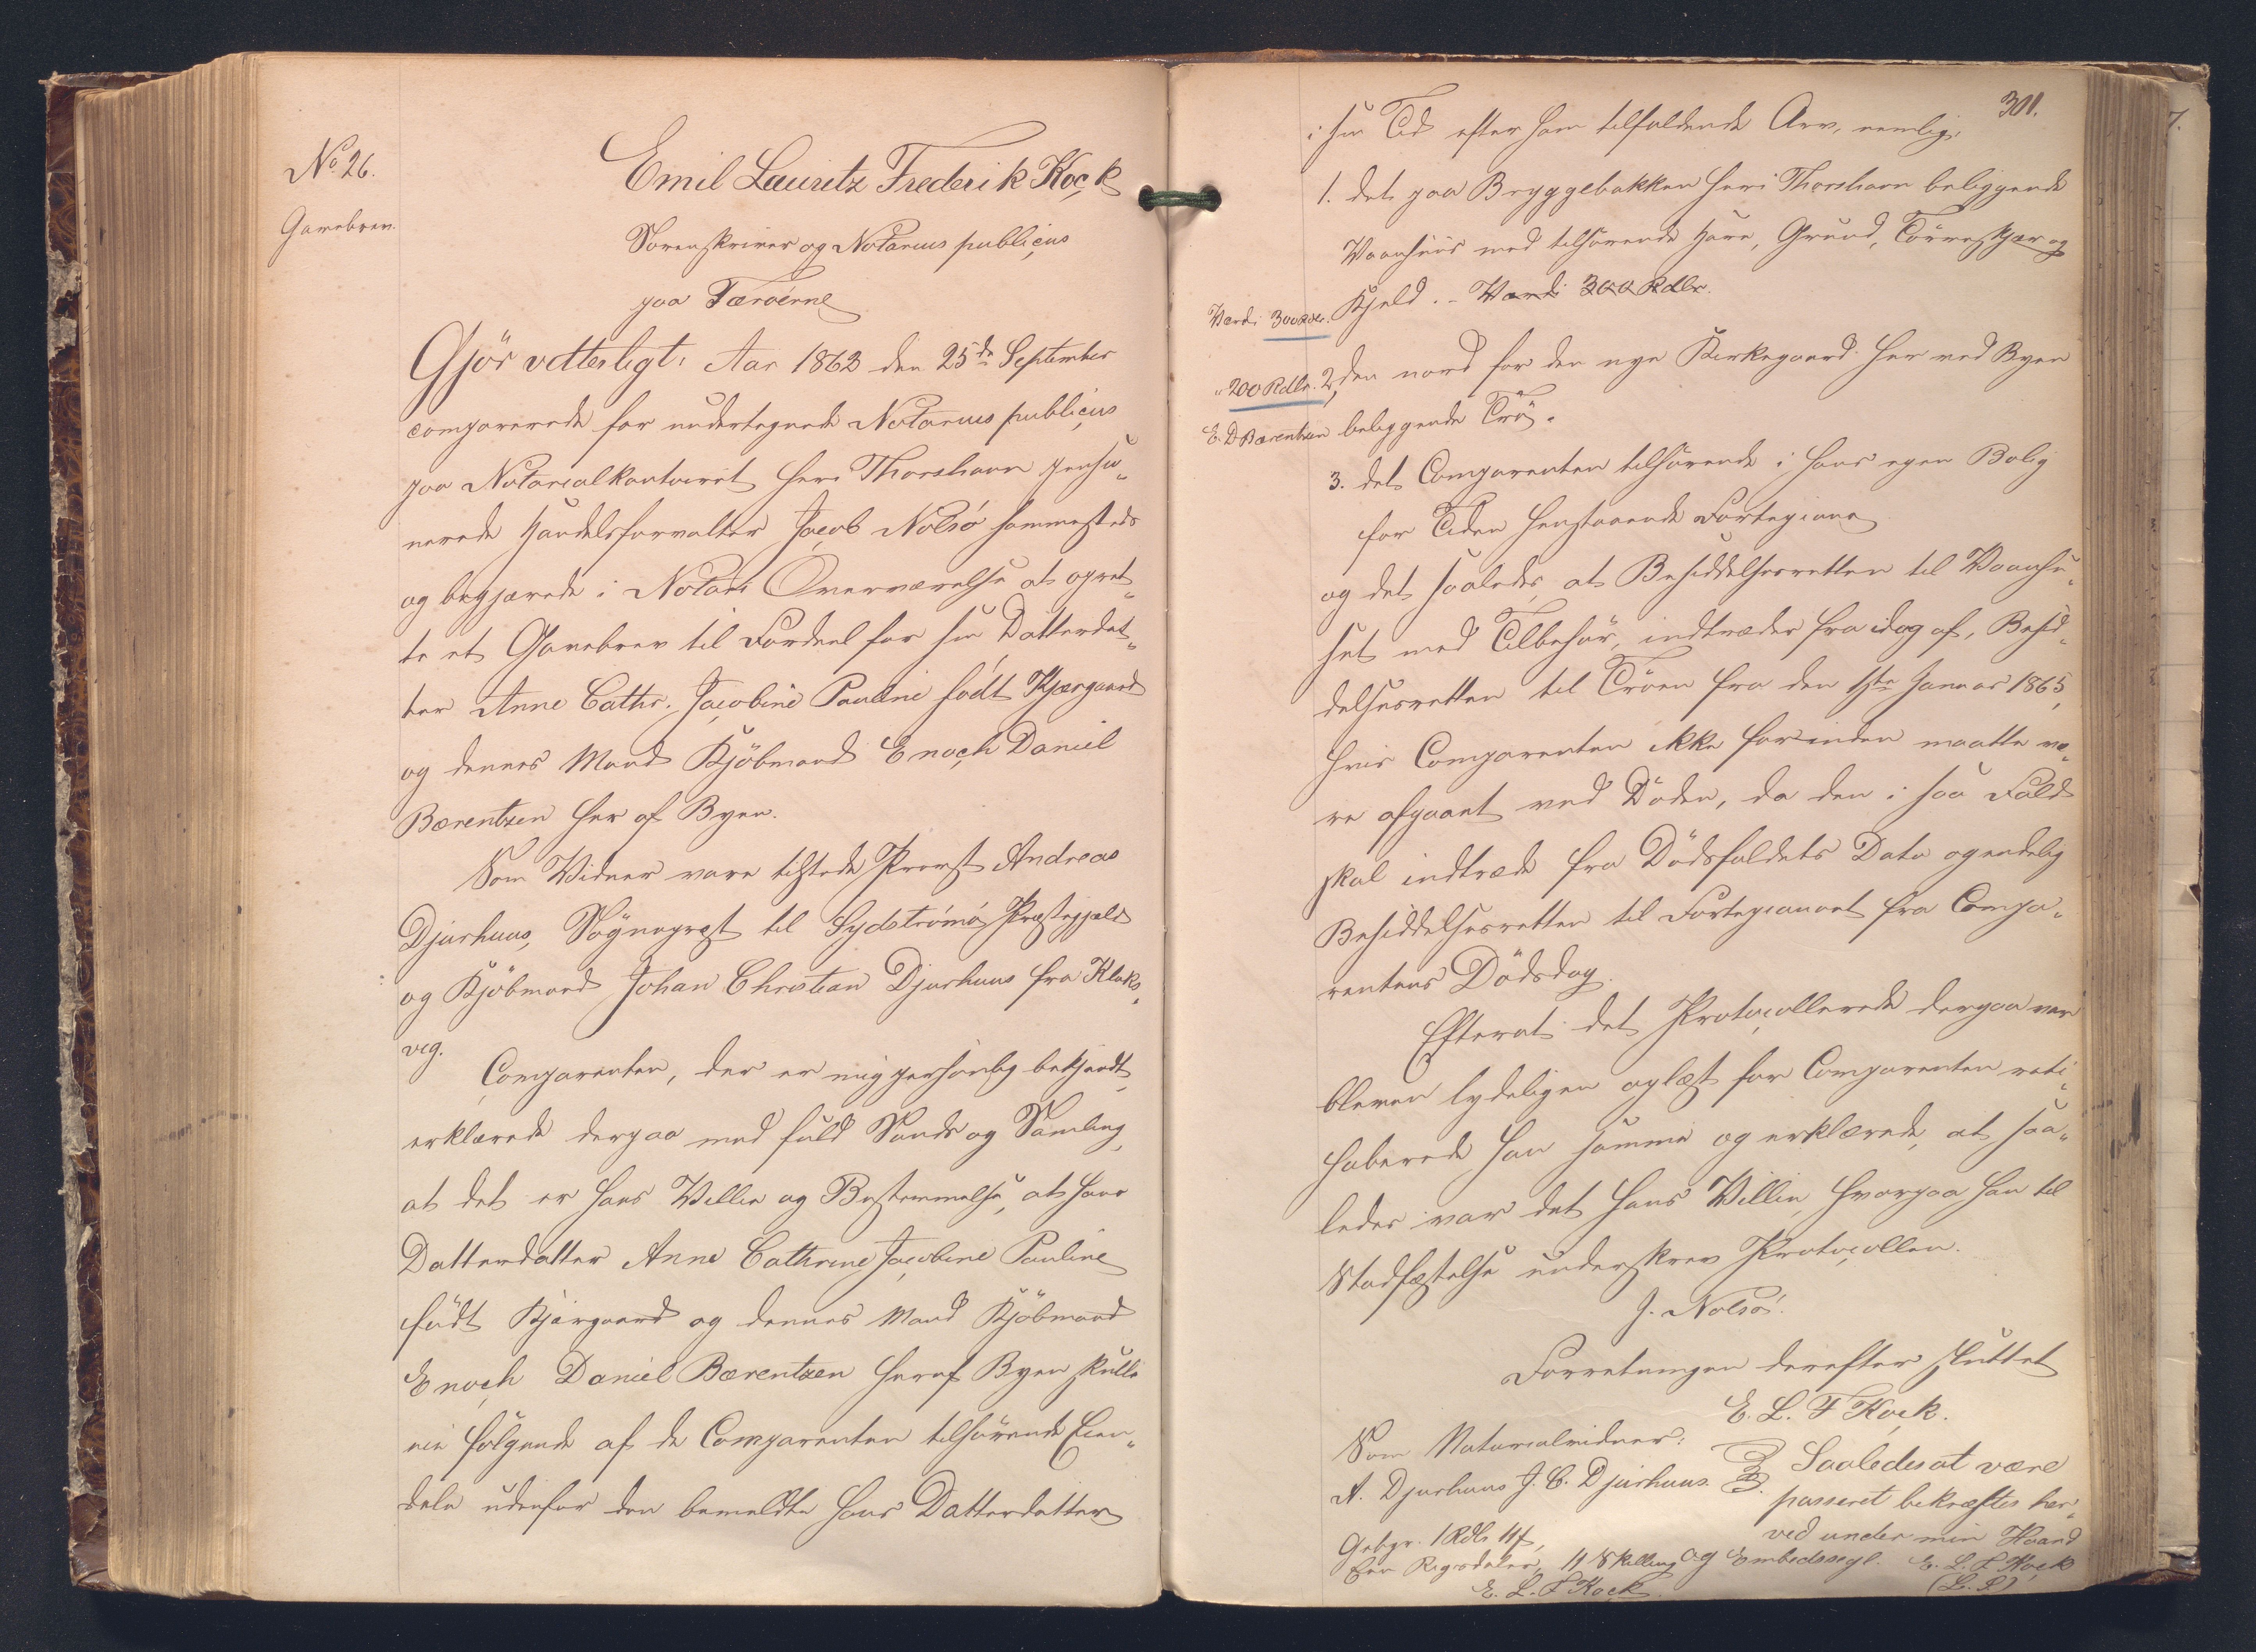 No. 26.
Gavebrev.
Emil Lauritz Frederik Kock
Sorenskriver og Notarius publicus
paa Færöerne
Gjör vitterligt: Aar 1863 den 25de September
comparerede for undertegnede Notarius publicus
paa Notarialkontoiret her i Thorshavn pensio„
nerede Handelsforvalter Jacob Nolsö sammesteds
og begjærede i Notarii Overværelse at opret„
te et Gavebrev til Fordeel for sin Datterdat„
ter Anne Cathr. Jacobine Pauline födt Kjærgaard
og dennes Mand Kjöbmand Enoch Daniel
Bærentzen her af Byen.
Som Vidner vare tilstede Provst Andreas
Djurhuus, Sognepræst til Sydströmö Præstegjæld
og Kjöbmand Johan Christian Djurhuus fra Klaks„
vig.
Comparenten, der er mig personlig bekjendt,
erklærede derpaa med fuld Sands og Samling,
at det er hans Villie og Bestemmelse, at hans
Datterdatter Anne Cathrine Jacobine Pauline
födt Kjærgaard og dennes Mand Kjöbmand
Enoch Daniel Bærentzen her af Byen skulle
eie fölgende af de Comparenten tilhörende Eien„
dele udenfor den bemeldte hans Datterdatter
301.
i sin Tid efter ham tilfaldende Arv, nemlig:
1. det paa Bryggebakken her i Thorshavn beliggende
Vaanhuus med tilhörende Have, Grund, Törveskjær og
Kjeld. – Værdi 300 Rdlr.
Værdi 300 Rdlr.
„ 200 Rdlr. 2, den nord for den nye Kirkegaard her ved Byen
E. D Bærentzen beliggende Trö.
3. det Comparenten tilhörende i hans egen Bolig
for Tiden henstaaende Fortepiano
og det saaledes, at Besiddelsesretten til Vaanhu„
set med Tilbehör, indtræder fra idag af, Besid„
delsesretten til Tröen fra den 1ste Januar 1865,
hvis Comparenten ikke forinden maatte væ„
re afgaaet ved Döden, da den i saa Fald
skal indtræde fra Dödsfaldets Dato og endelig
Besiddelsesretten til Fortepianoet fra Compa„
rentens Dödsdag.
Efterat det Protocollerede derpaa var
bleven lydeligen oplæst for Comparenten rati„
haberede han samme og erklærede, at saa„
ledes var det hans Villie, hvorpaa han til
Stadfæstelse underskrev Protocollen.
J. Nolsö.
Forretningen derefter sluttet
E. L. F Kock.
Som Notarialvidner:
A. Djurhuus J. C. Djurhuus.
Saaledes at være
passeret bekræftes her„
ved under min Haand
og Embedssegl. E. L. F Kock
(L. S.)
Gebyr. 1 Rdlr. 4 s,
Een Rigsdaler, 4 Skilling
E. L. F Kock.
7.